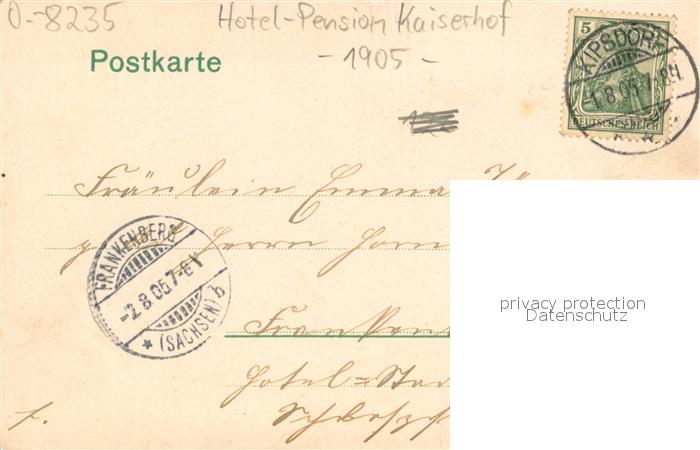 O-8235 Hotel-Pension Kaiserhof
- 1905 -
Postkarte
5
DEUTSCHES REICH
KIPSDORF
1.8.05.7-8N.
Fräulein Emma
Herrn
FRANKENBERG
-2.8.05.7-8V
* (SACHSEN) b
privacy protection
Datenschutz
Franken
Hotel=